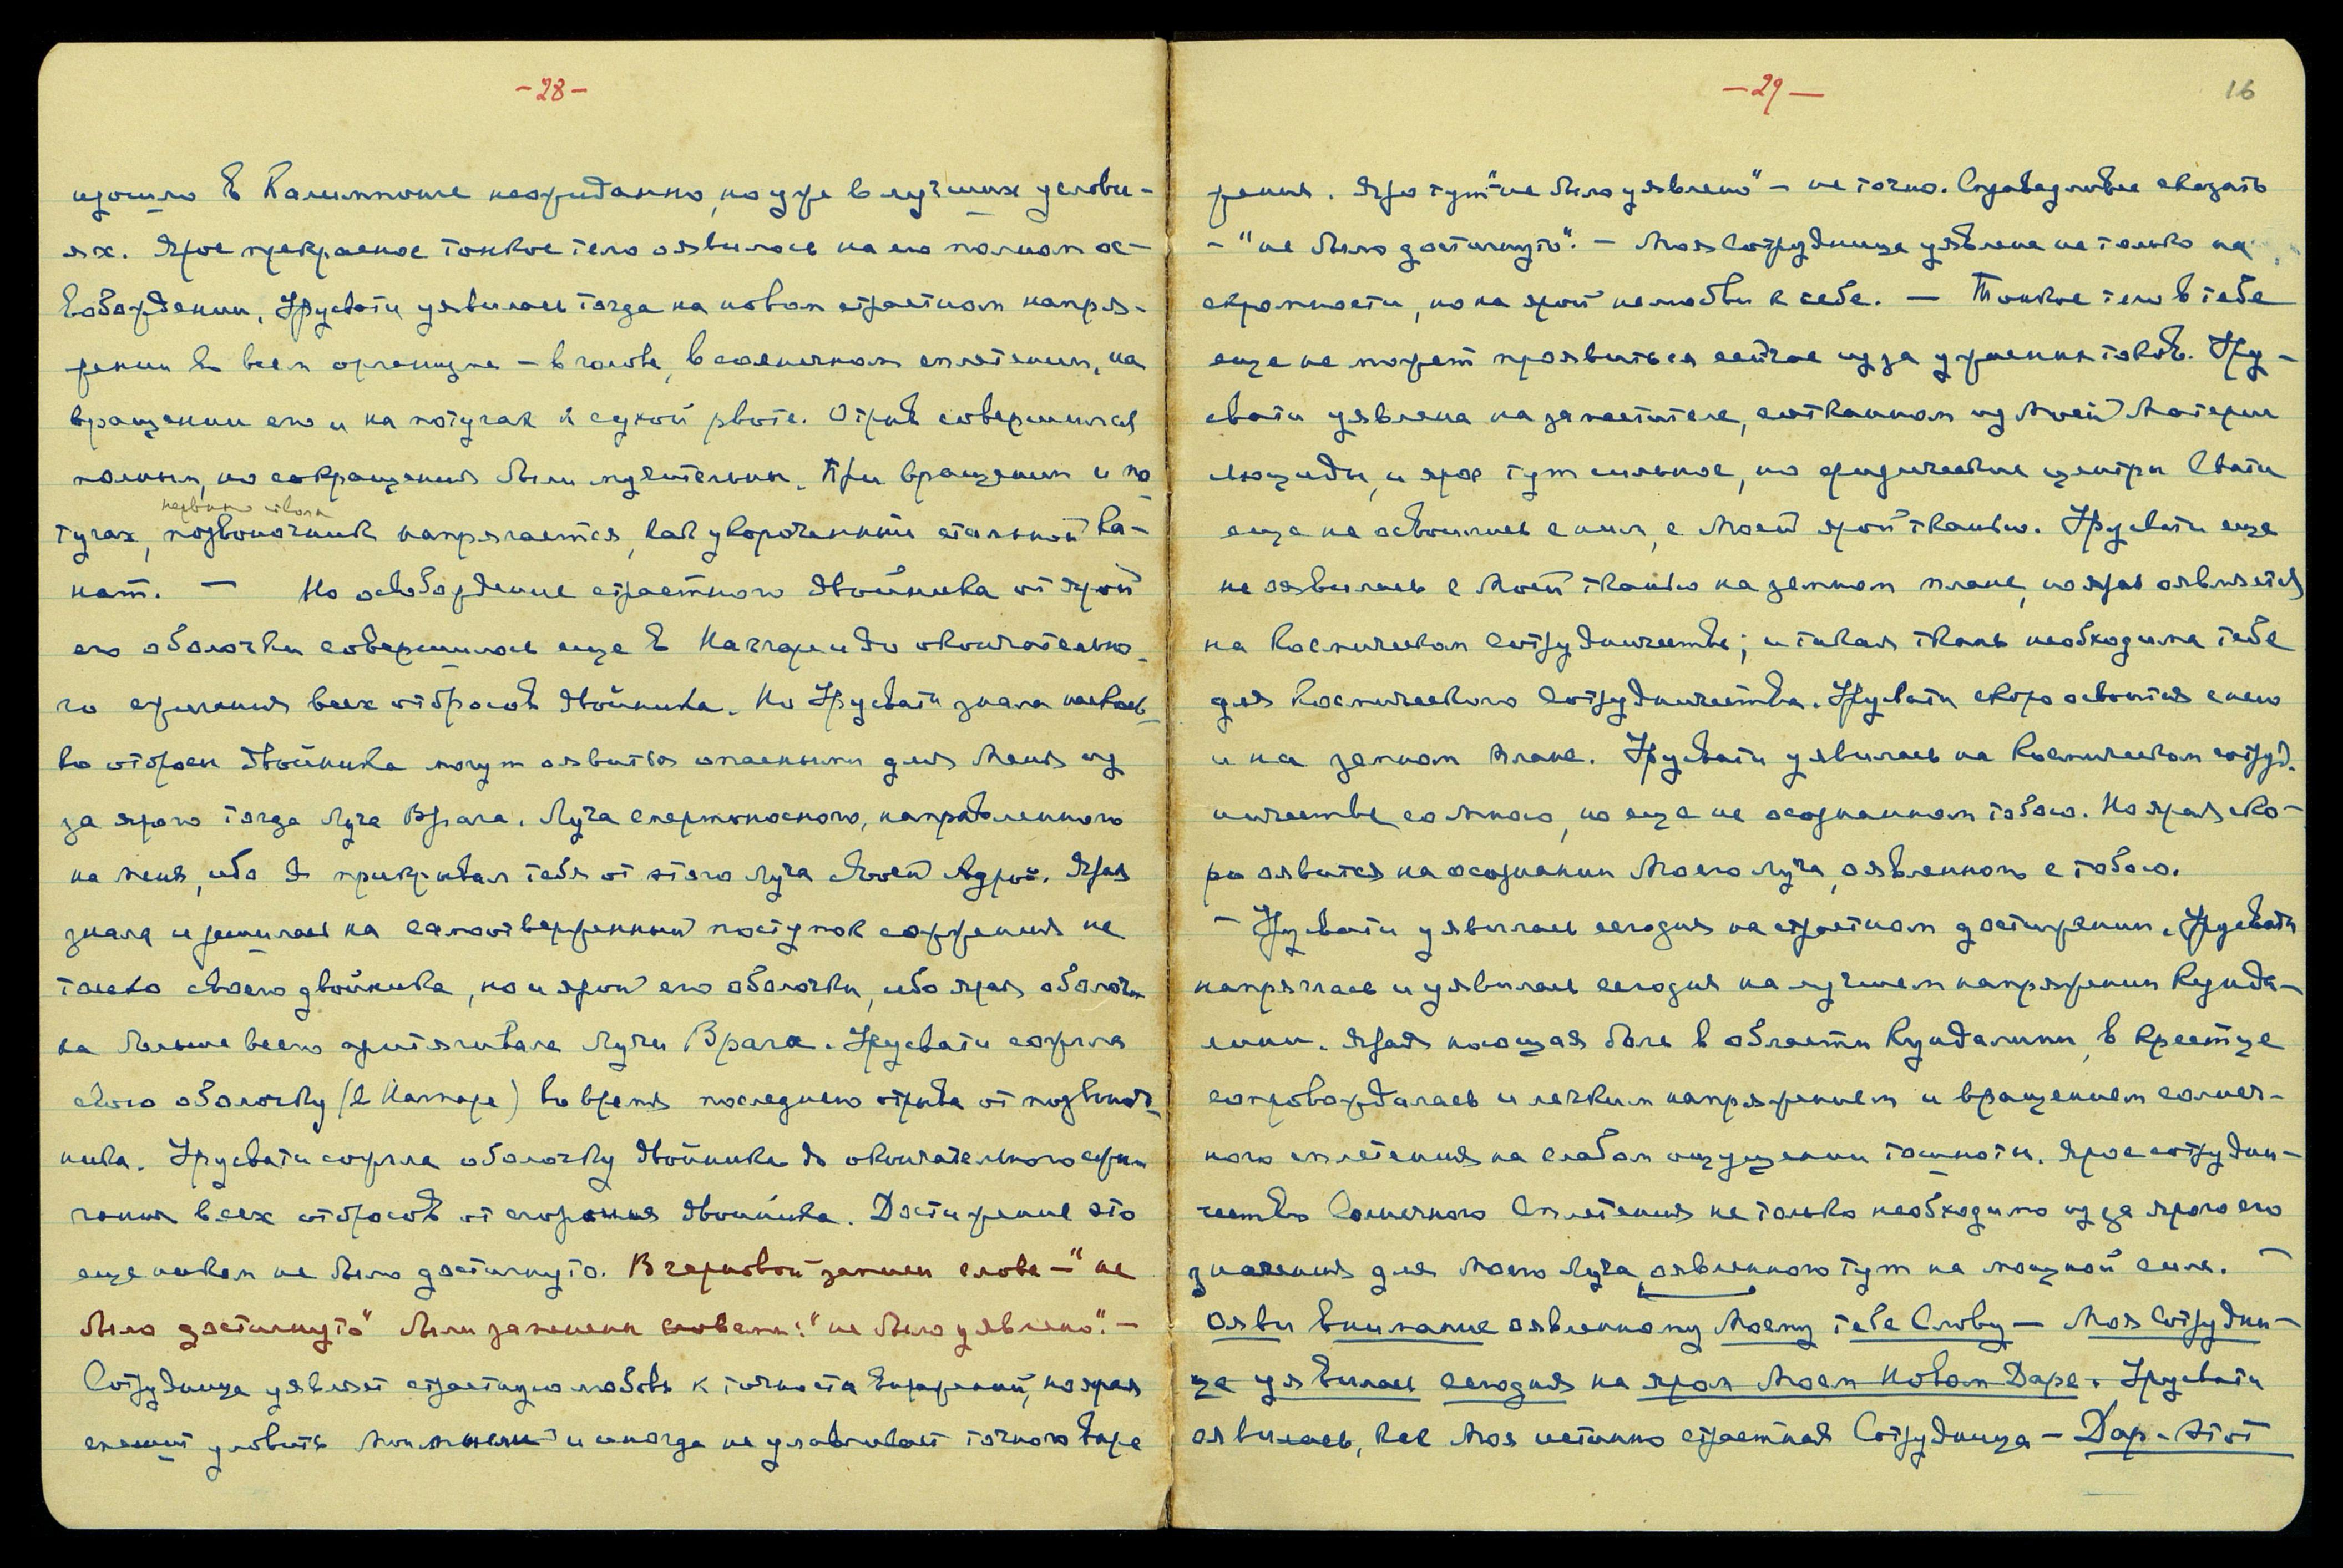 -28-
изошло в Калимпонге неожиданно, но уже в лучших услови-
ях. Ярое прекрасное тонкое тело оявилось на его полном ос-
вобождении, Урусвати уявилась тогда на новом страстном напря-
жении во всем организме – в голове, в солнечном сплетении, на
вращении его и на потугах к сухой рвоте. Отрыв совершился
полный, но сокращения были мучительны. При вращении и по-
нервные стволы
тугах, позвоночник напрягается, как укороченный стальной ка-
нат. — Но освобождение страстного двойника от ярой
его оболочки совершилось еще в Наггаре и до окончательно-
го сжигания всех отбросов двойника. Но Урусвати знала насколь-
ко отбросы двойника могут оявиться опасными для Меня из
за ярого тогда Луча Врага. Луча смертоносного, направленного
на меня, ибо Я прикрывал тебя от этого луча своей Аурой. Ярая
знала и решилась на самоотверженный поступок сожжения не
только своего двойника, но и ярой его оболочки, ибо ярая оболоч-
ка больше всего притягивала Лучи Врага. Урусвати сожгла
свою оболочку (в Наггаре) во время последнего отрыва от позвоноч-
ника. Урусвати сожгла оболочку двойника до окончательного сжи-
гания всех отбросов от сгорания двойника. Достижение это
еще никем не было достигнуто. В черновой записи слова – "не
было достигнуто" были заменены словами: "не было уявлено". –
Сотрудница уявляет страстную любовь к точности выражений, но ярая
спешит уловить Мои мысли и иногда не улавливает точного выра-
-29-
16
жения. Яро тут "не было уявлено" – не точно. Справедливее сказать
– "не было достигнуто". – Моя Сотрудница уявлена не только на
скромности, но на ярой нелюбви к себе. — Тонкое тело в тебе
еще не может проявиться сейчас из за утраты токов. Уру-
свати уявлена на заместителе, сотканном из Моей Материи
Люциды, и ярое тут сильное, но физические центры Свати
еще не освоились с ним, с Моей ярой тканью. Урусвати еще
не оявилась с Моей тканью на земном плане, но ярая оявляется
на Космическом Сотрудничестве; и такая ткань необходима тебе
для Космического Сотрудничества. Урусвати скоро освоится с нею
и на земном плане. Урусвати уявилась на Космическом сотруд-
ничестве со Мною, но еще не осознанном тобою. Но ярая ско-
ро оявится на осознании Моего Луча, оявленного с тобою.
– Урусвати уявилась сегодня на страстном достижении. Урусвати
напряглась и уявилась сегодня на лучшем напряжении Кунда-
лини. Ярая ноющая боль в области Кундалини, в крестце
сопровождалась и легким напряжением и вращением солнеч-
ного сплетения на слабом ощущении тошноты. Ярое сотрудни-
чество Солнечного Сплетения не только необходимо из за ярого его
значения для Моего Луча, оявленного тут на мощной силе. –
Ояви внимание оявленному Моему тебе Слову – Моя Сотрудни-
ца уявилась сегодня на яром Моем Новом Даре. Урусвати
оявилась, как Моя истинно страстная Сотрудница – Дар этот